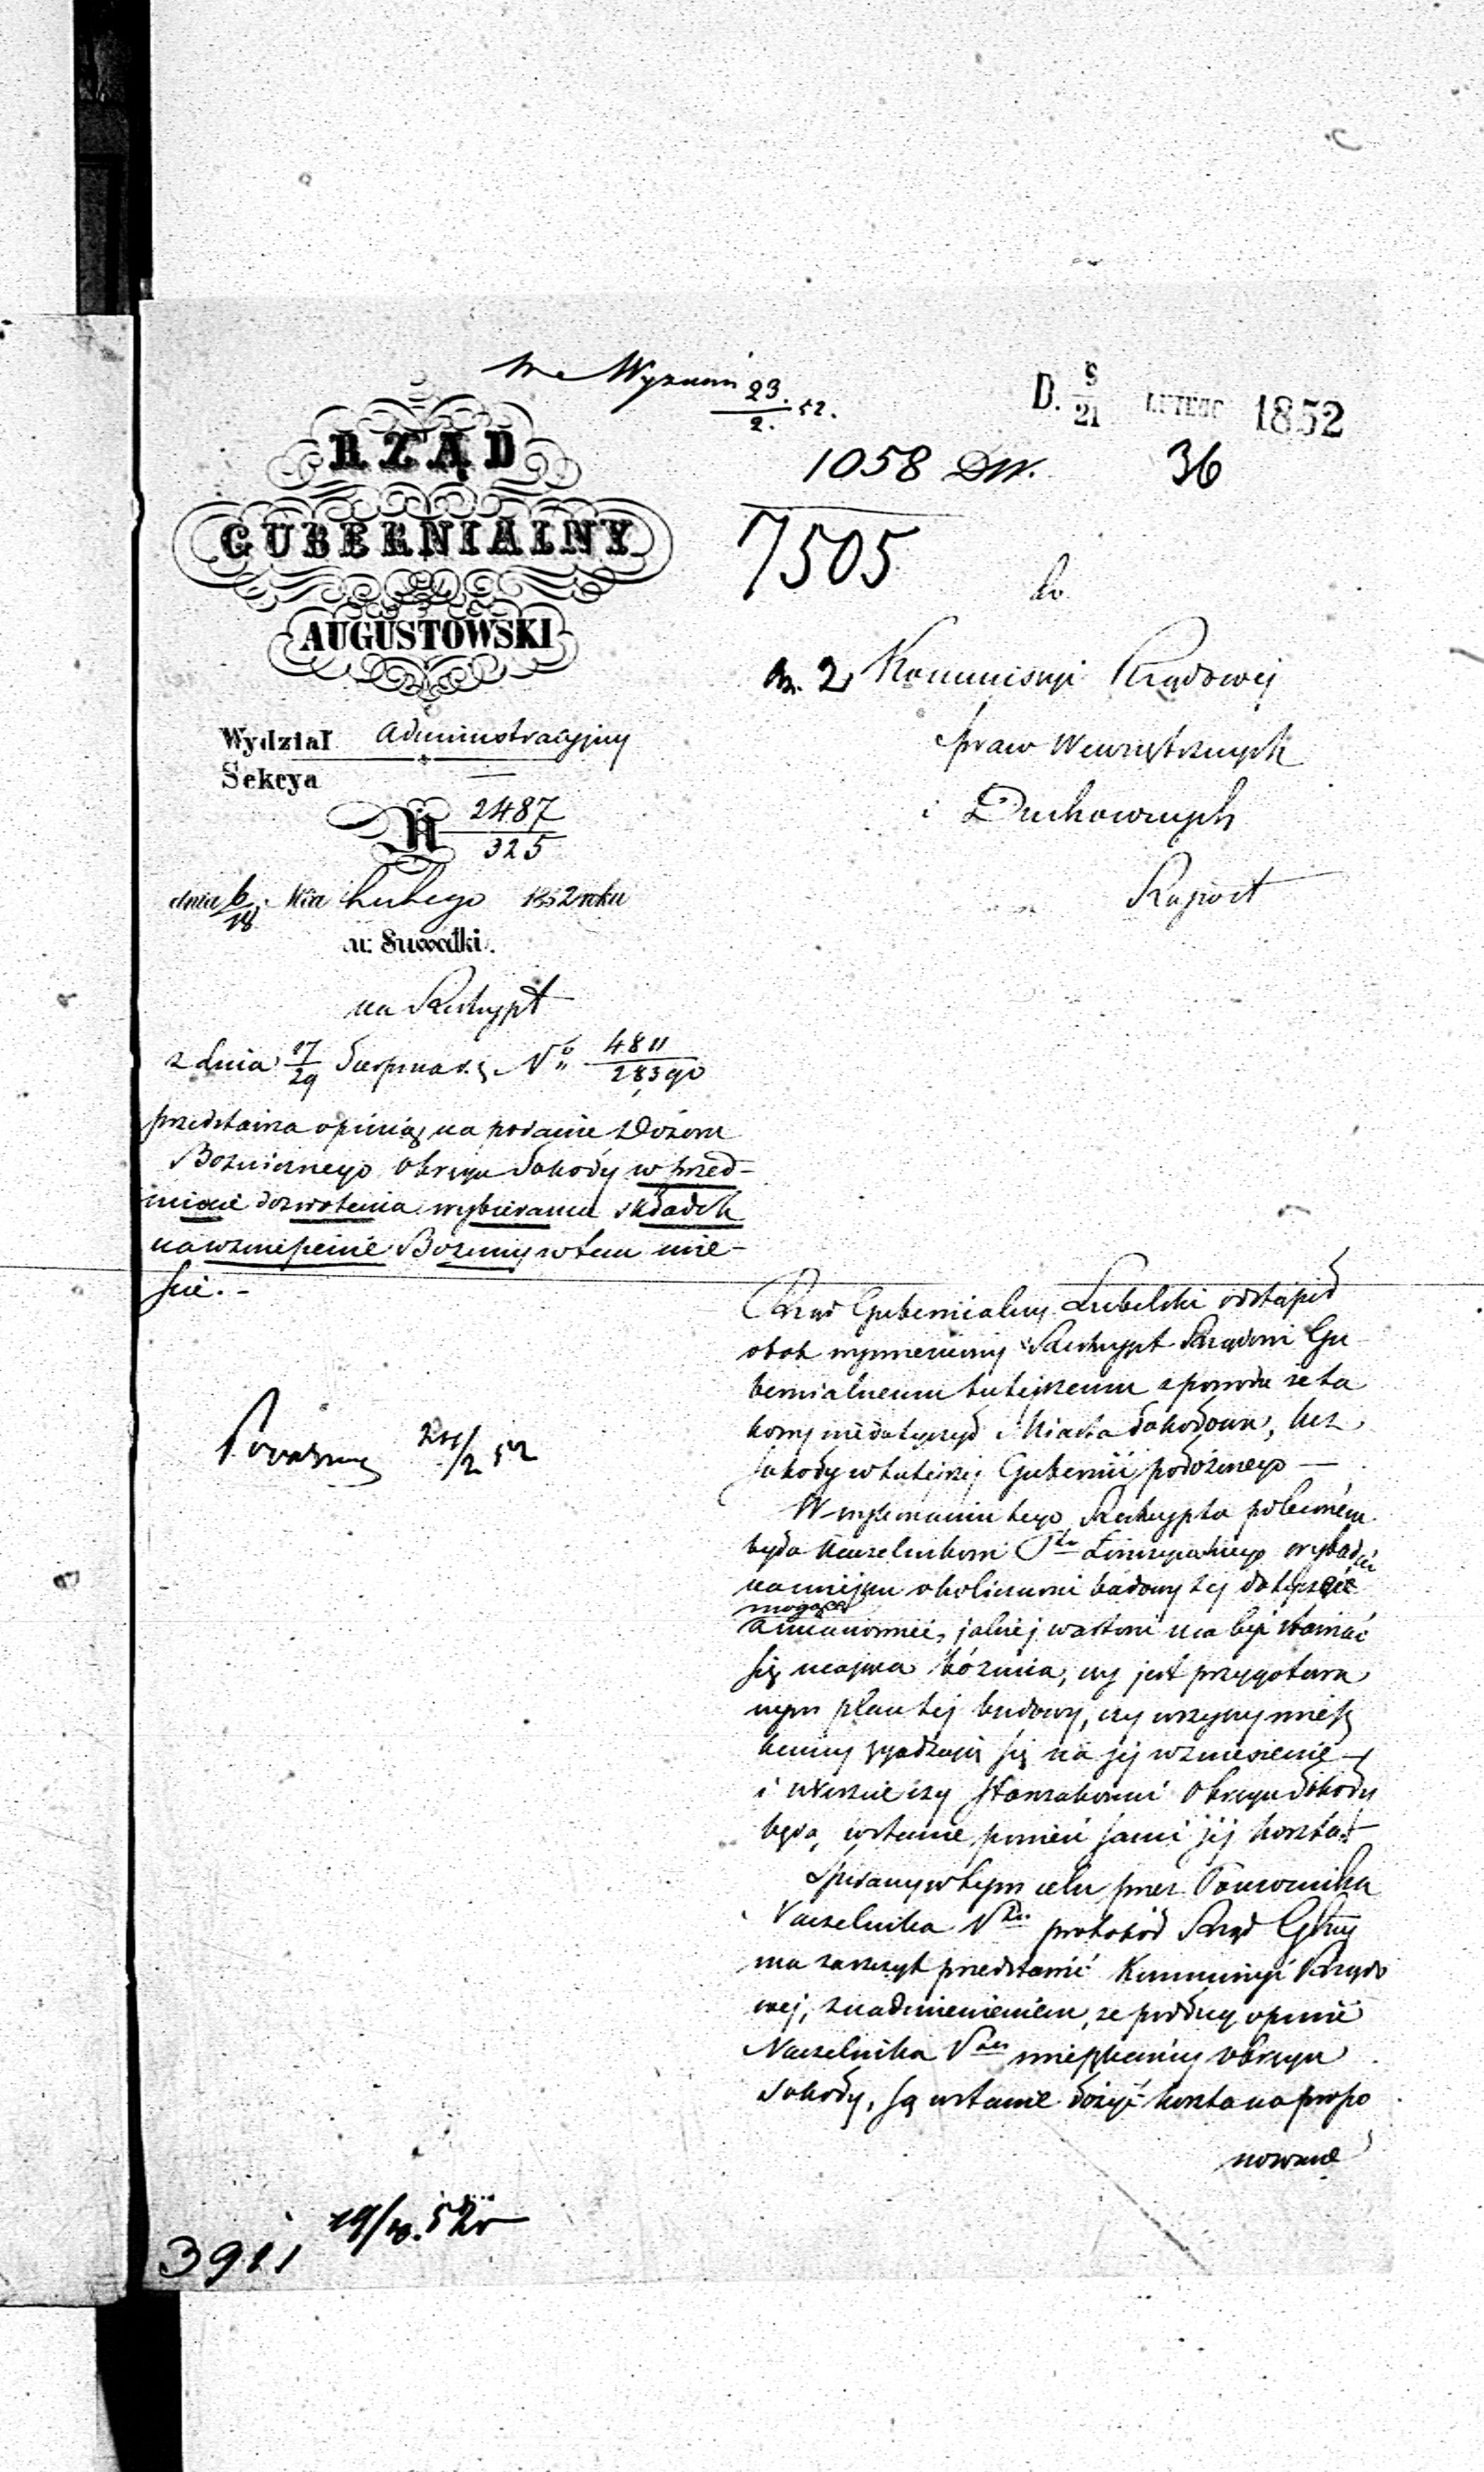 Wyznań 23./2. 52.
D. 9/21 LUTEGO 1852
1058 DW. 36
7505
RZĄD
GUBERNIALNY
AUGUSTOWSKI
Wydział Administracyjny
Sekcya
N 2487/325
dnia 6/18 Mca Lutego 1852 roku
w Suwałki.
na Reskrypt
z dnia 17/29 Sierpnia r. z. No 4811/28390
przedstawia opinią na podanie Dozoru
Bożniczego Okręgu Sokoły w przed-
miocie dozwolenia wybierania składek
na wzniesienie Bożnicy w tem mie-
ście. -
do
Kommissyi Rządowej
Spraw Wewnętrznych
i Duchownych
Raport
Rząd Gubernialny Lubelski odstąpił
obok wymieniony Reskrypt Rządowi Gu
bernialnemu tutejszemu z powodu że ta
kowy nie dotyczył Miasta Sokołowa, lecz
Sokoły w tutejszej Gubernii położonego —
W wykonaniu tego Reskryptu poleconém
było Naczelnikowi Ptu Łomżyńskiego wybadać
na miejscu okoliczności budowy tej dotyczące
mogące
a mianowicie, jakiej wartości ma być stawiać
się mająca bóżnica, czy jest przygotowa
nym plan tej budowy, czy wszyscy miesz
kańcy zgadzają się na jej wzniesienie
i wreszcie czy Starozakonni Okręgu Sokoły
będą w stanie ponieść sami jej koszta. —
Spisany w tym celu przez Pomocnika
Naczelnika Ptu protokół Rząd Gbny
ma zaszczyt przedstawić Kommissyi Rządo
wej, z nadmienieniem, że podług opinii
Naczelnika Ptu mieszkańcy okręgu
Sokoły, są w stanie złożyć koszta na propo
nowane
24/2 52
3911